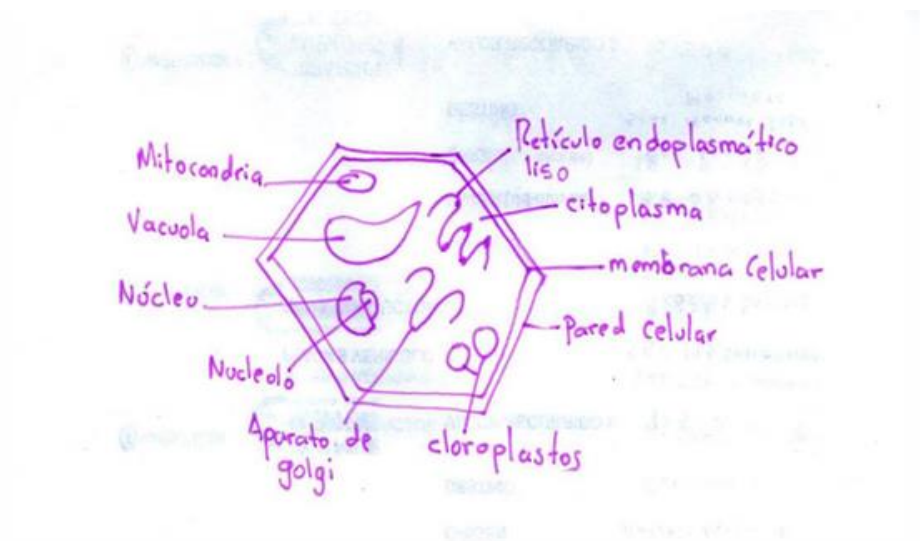 Mitocondria
Vacuola
Núcleo
Nucleolo
Aparato de
golgi
cloroplastos
Retículo endoplasmático
liso
citoplasma
membrana Celular
Pared Celular